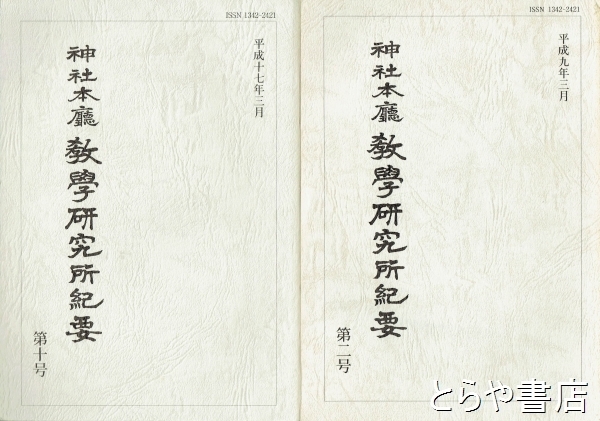 ISSN 1342-2421
平成十七年三月
神社本廳教學研究所紀要
第十号
ISSN 1342-2421
平成九年三月
神社本廳教學研究所紀要
第二号
とらや書店